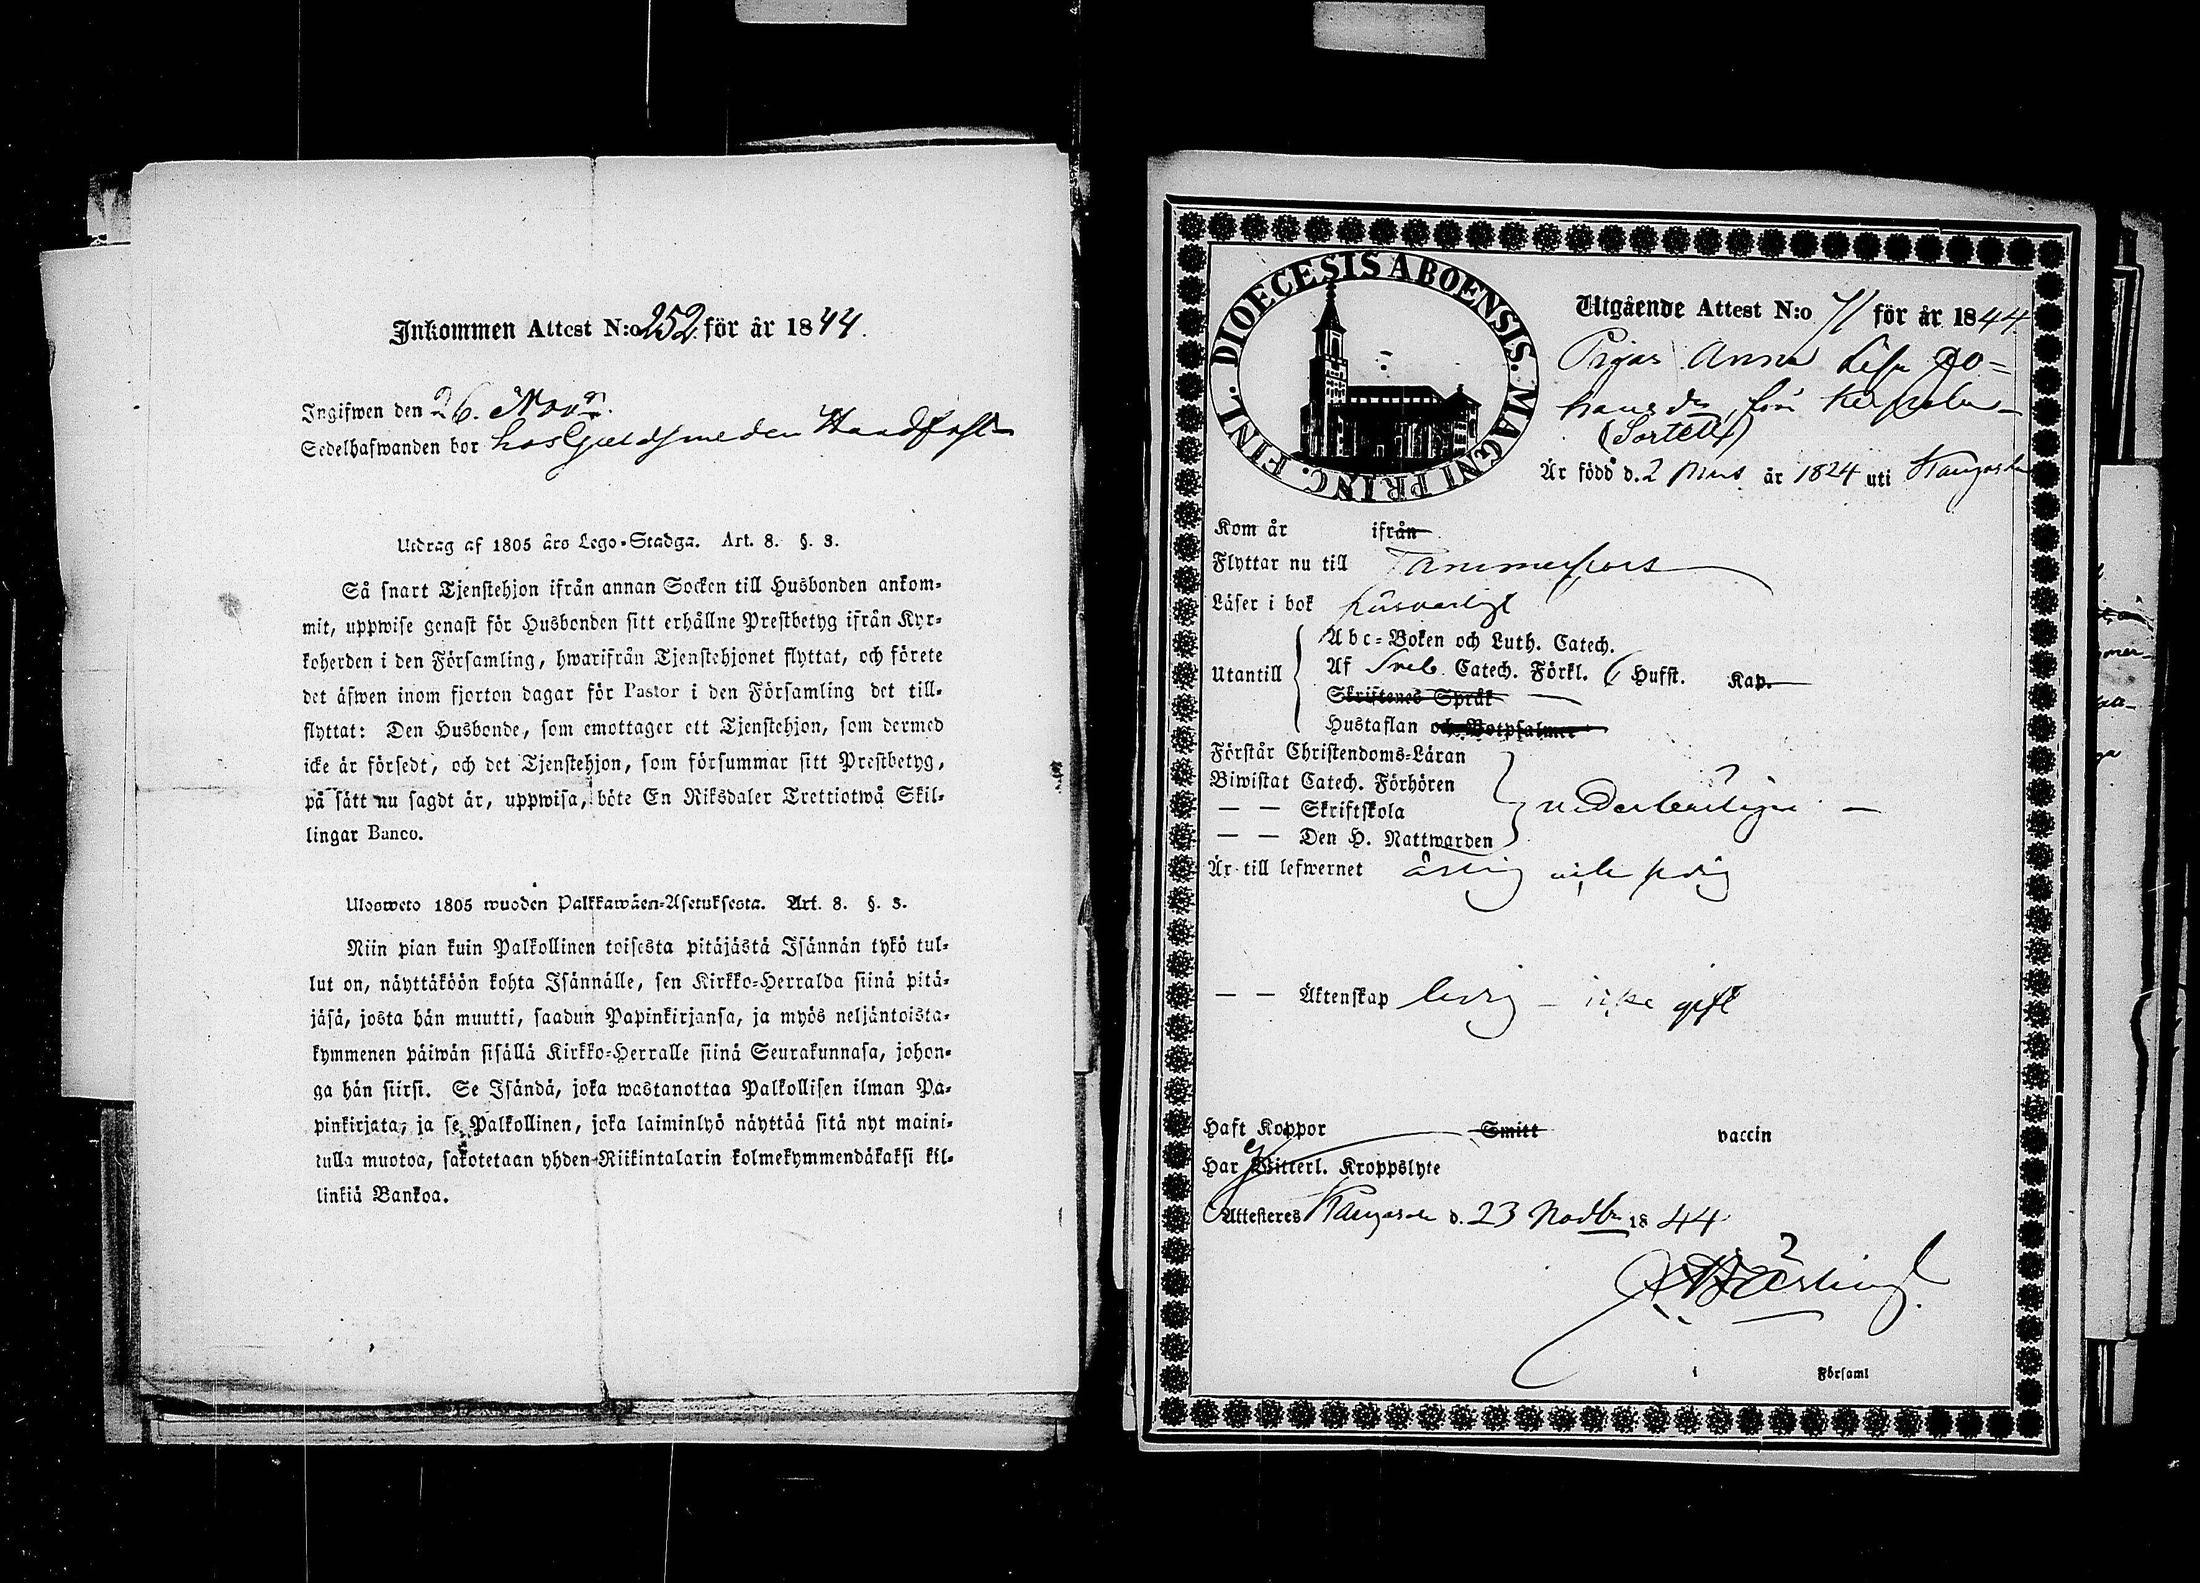 Inkommen Attest N:o 252 för år 1844.
Ingifwen den 26. Novr.
Sedelhafwanden bor hos Guldsmeden Handfast
Utdrag af 1805 års Lego-Stadga. Art. 8. §. 8.
Så snart Tjenstehjon ifrån annan Socken till Husbonden ankom-
mit, uppwise genast för Husbonden sitt erhållne Prestbetyg ifrån Kyr-
koherden i den Församling, hwarifrån Tjenstehjonet flyttat, och förete
det äfwen inom fjorton dagar för Pastor i den Församling det till-
flyttat: Den Husbonde, som emottager ett Tjenstehjon, som dermed
icke är försedt, och det Tjenstehjon, som försummar sitt Prestbetyg,
på sätt nu sagdt är, uppwisa, böte En Riksdaler Trettiotwå Skil-
lingar Banco.
Ulosweto 1805 wuoden Palkkawäen-Asetuksesta. Art. 8. §. 8.
Niin pian kuin Palkollinen toisesta pitäjästä Isännän tykö tul-
lut on, näyttäköön kohta Isännälle, sen Kirkko-Herralda siinä pitä-
jäsä, josta hän muutti, saadun Papinkirjansa, ja myös neljäntoista-
kymmenen päiwän sisällä Kirkko-Herralle siinä Seurakunnasa, johon-
ga hän siirsi. Se Isändä, joka wastanottaa Palkollisen ilman Pa-
pinkirjata, ja se Palkollinen, joka laiminlyö näyttää sitä nyt maini-
tulla muotoa, sakotetaan yhden Riikintalarin kolmekymmendäkaksi kil-
linkiä Bankoa.
DIOECESIS ABOENSIS. MAGNI PRINC. FINL.
Utgående Attest N:o 71 för år 1844.
Pigan Anna Lisa Jo-
hansdr från
(Sortell)
Är född d. 2 Mars år 1824 uti Kangasala
Kom år ifrån
Flyttar nu till Tammerfors
Läser i bok försvarligt
Utantill
Abc-Boken och Luth. Catech.
Af Sveb. Catech. Förkl. 6 Hufst. Kap.
Skriftenes Språk
Hustaflan och Botpsalmer
Förstår Christendoms-Läran
Biwistat Catech. Förhören
— — Skriftskola
— — Den H. Nattwarden
nederbörligen
Är till lefwernet ärlig och frdig
— — Äktenskap ledig – icke gift
Haft Koppor Smitt vaccin
Har Witterl. Kroppslyte
Ej
Attesteres Kangasala d. 23 Novbr 1844
i Församl